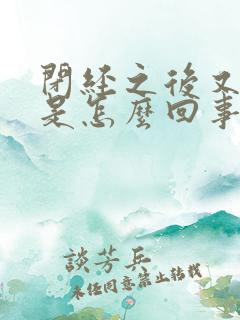 閉经之後又
是怎麼回事
談芳兵
未经同意禁止转载